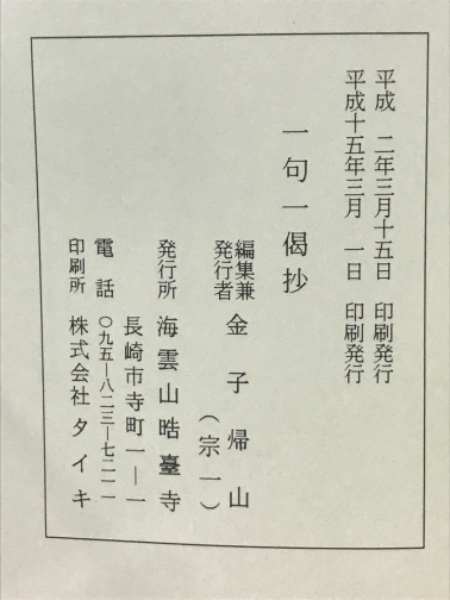 平成　二年三月十五日　印刷発行
平成十五年三月　一日　印刷発行
一句一偈抄
編集兼
発行者　金子帰山
（宗一）
発行所　海雲山晧臺寺
長崎市寺町一―一
電話　〇九五―八二三―七二一一
印刷所　株式会社タイキ